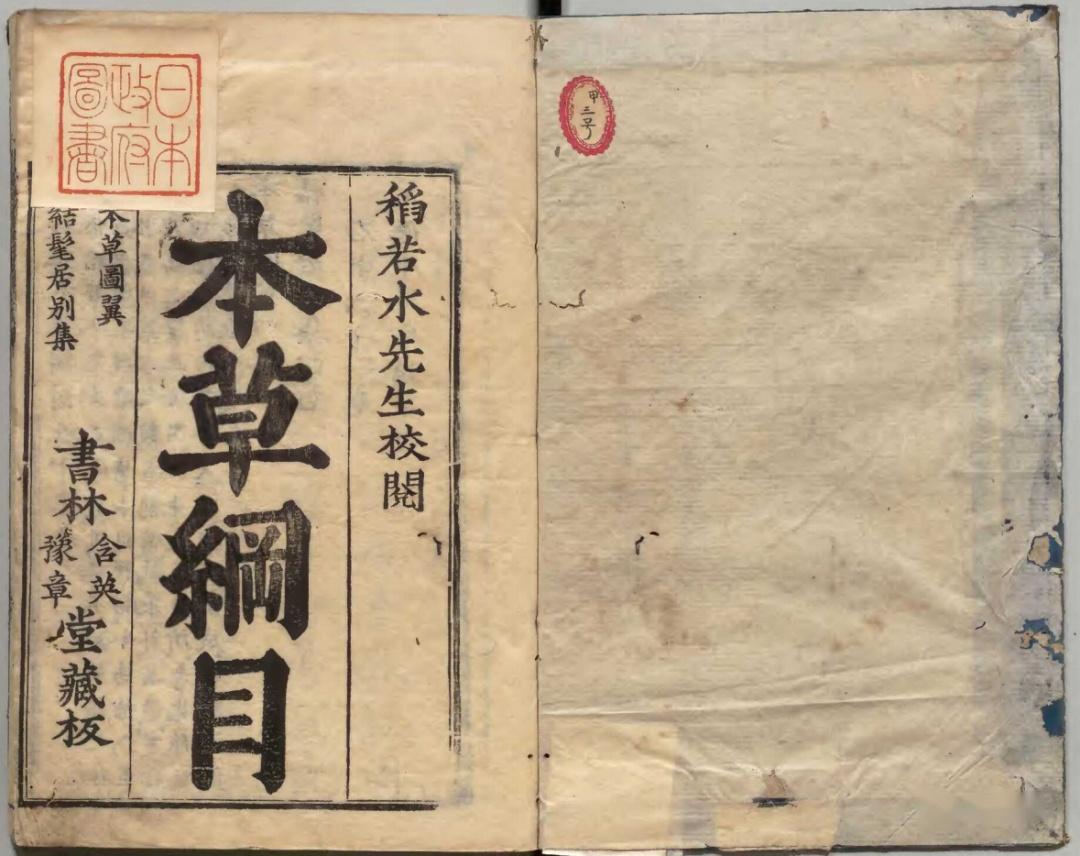 甲三号
稻若水先生校閱
本草綱目
本草圖翼
結髦居別集
書林
含英
豫章
堂藏板
日本
政府
圖書